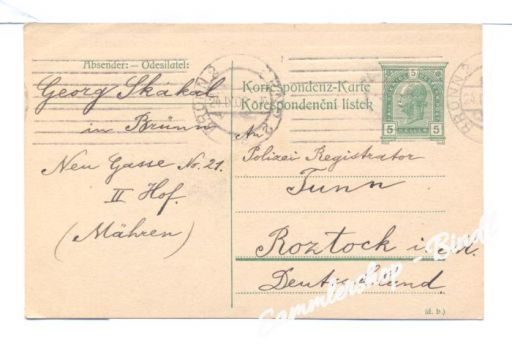 Absender: – Odesílatel:
Georg Skákal
in Brünn
Neu Gasse No. 21.
II Hof.
(Mähren)
BRÜNN 2
Korrespondenz-Karte
Korespondenční lístek
5
5 HELLER 5
BRÜNN 2
An
Polizei Registrator
Tunn
Roztock i. M.
Deutschland
(d. b.)
Sammlershop - Bindl